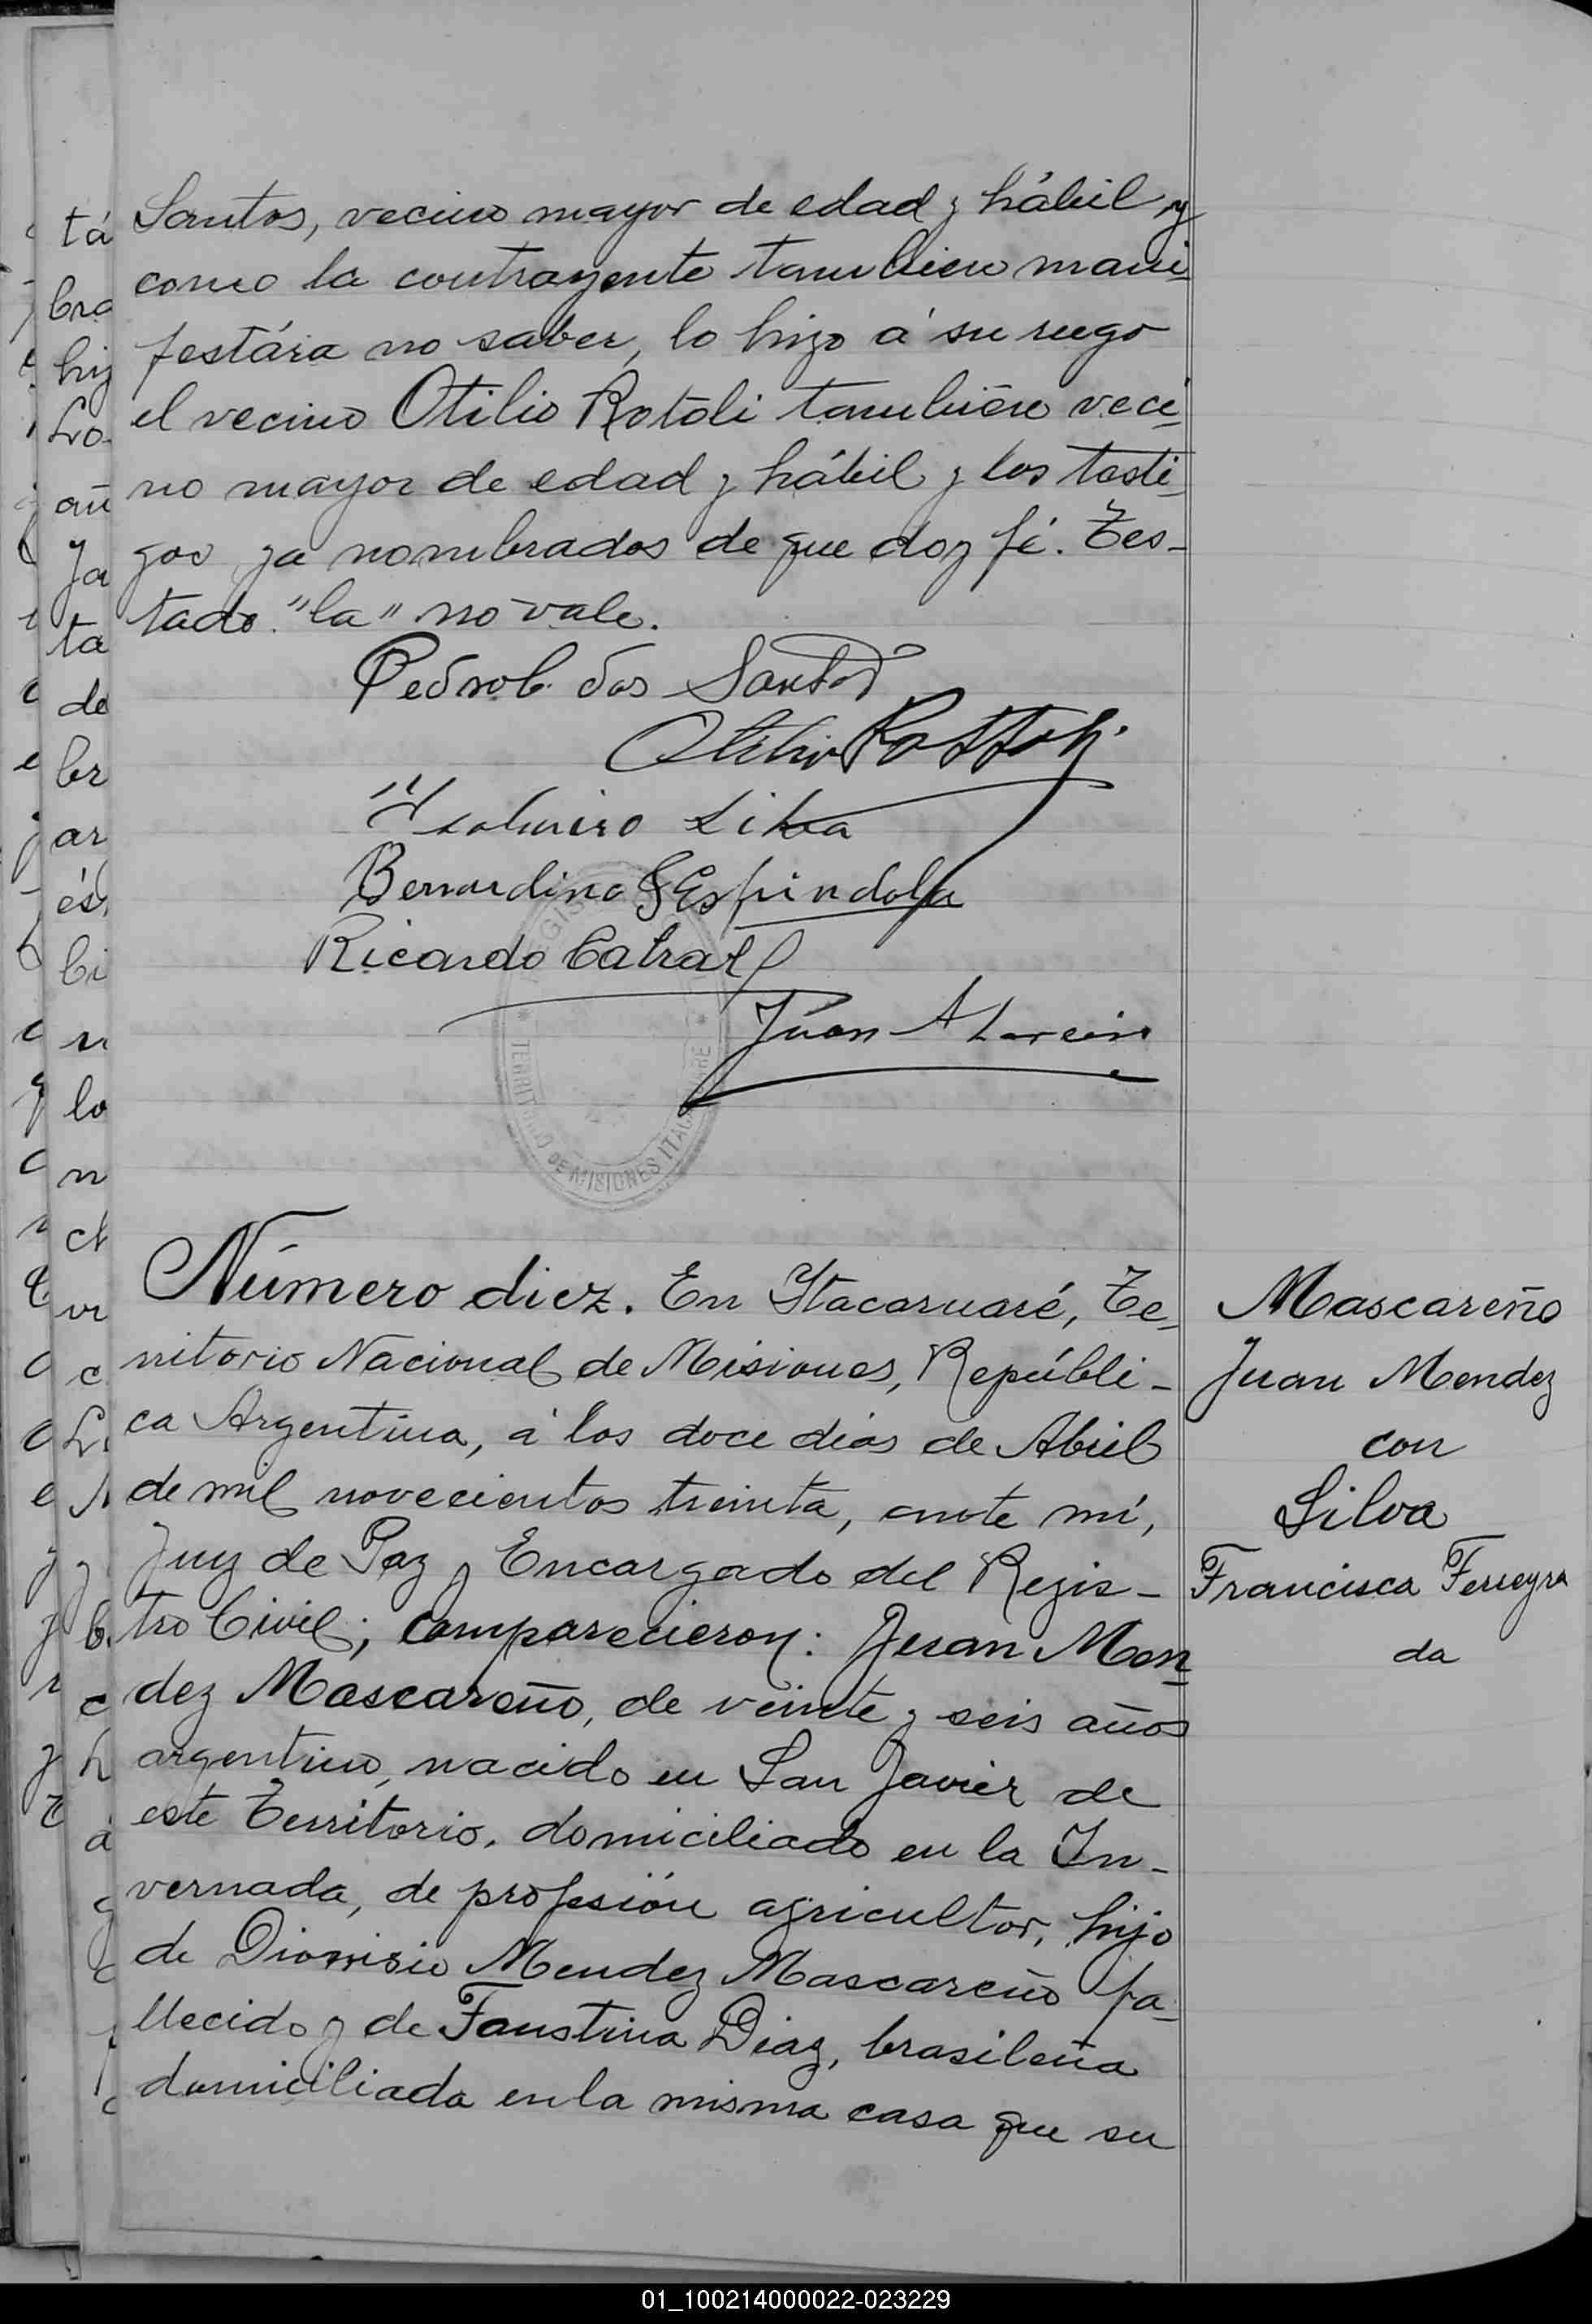 Santos, vecino mayor de edad y hábil y
como la contrayente tambien mani-
festára no saber, lo hizo á su ruego
el vecino Otilio Rotoli tambien veci-
no mayor de edad y hábil y los testi-
gos ya nombrados de que doy fé. Tes-
tado "la" no vale.
Pedro C. dos Santos
Otilio Rottoli
Silva
Bernardino Espindola
Ricardo Cabral
Juan A
TERRITORIO DE MISIONES ITACARUARE
Número diez. En Ytacaruaré, Te-
rritorio Nacional de Misiones, Repúbli-
ca Argentina, á los doce dias de Abril
de mil novecientos treinta, ante mí,
Juez de Paz y Encargado del Regis-
tro Civil; comparecieron: Juan Men-
dez Mascareño, de veinte y seis años
argentino, nacido en San Javier de
este Territorio, domiciliado en la In-
vernada, de profesión agricultor, hijo
de Dionisio Mendez Mascareño fa-
llecido y de Faustina Diaz, brasileña
domiciliada en la misma casa que su
Mascareño
Juan Mendez
con
Silva
Francisca Ferreyra
da
01_100214000022-023229